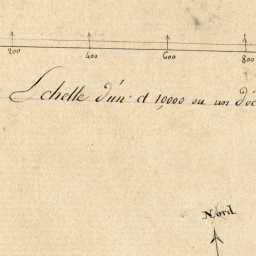 200 600 800
Echelle d'un a 10000 ou un déc
Nord